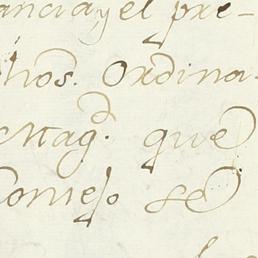 ancia y el pre-
hos. Ordina-
Mag.d que
Consejo se